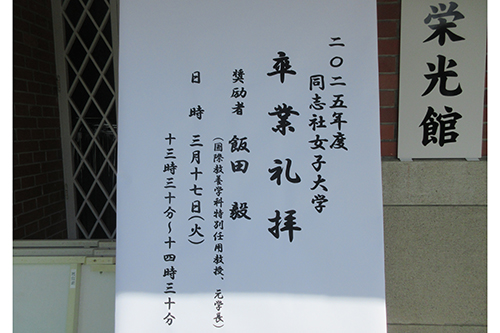 栄光館
二〇二五年度
同志社女子大学
卒業礼拝
奨励者 飯田 毅
(国際教養学科特別任用教授、元学長)
日時 三月十七日(火)
十三時三十分～十四時三十分